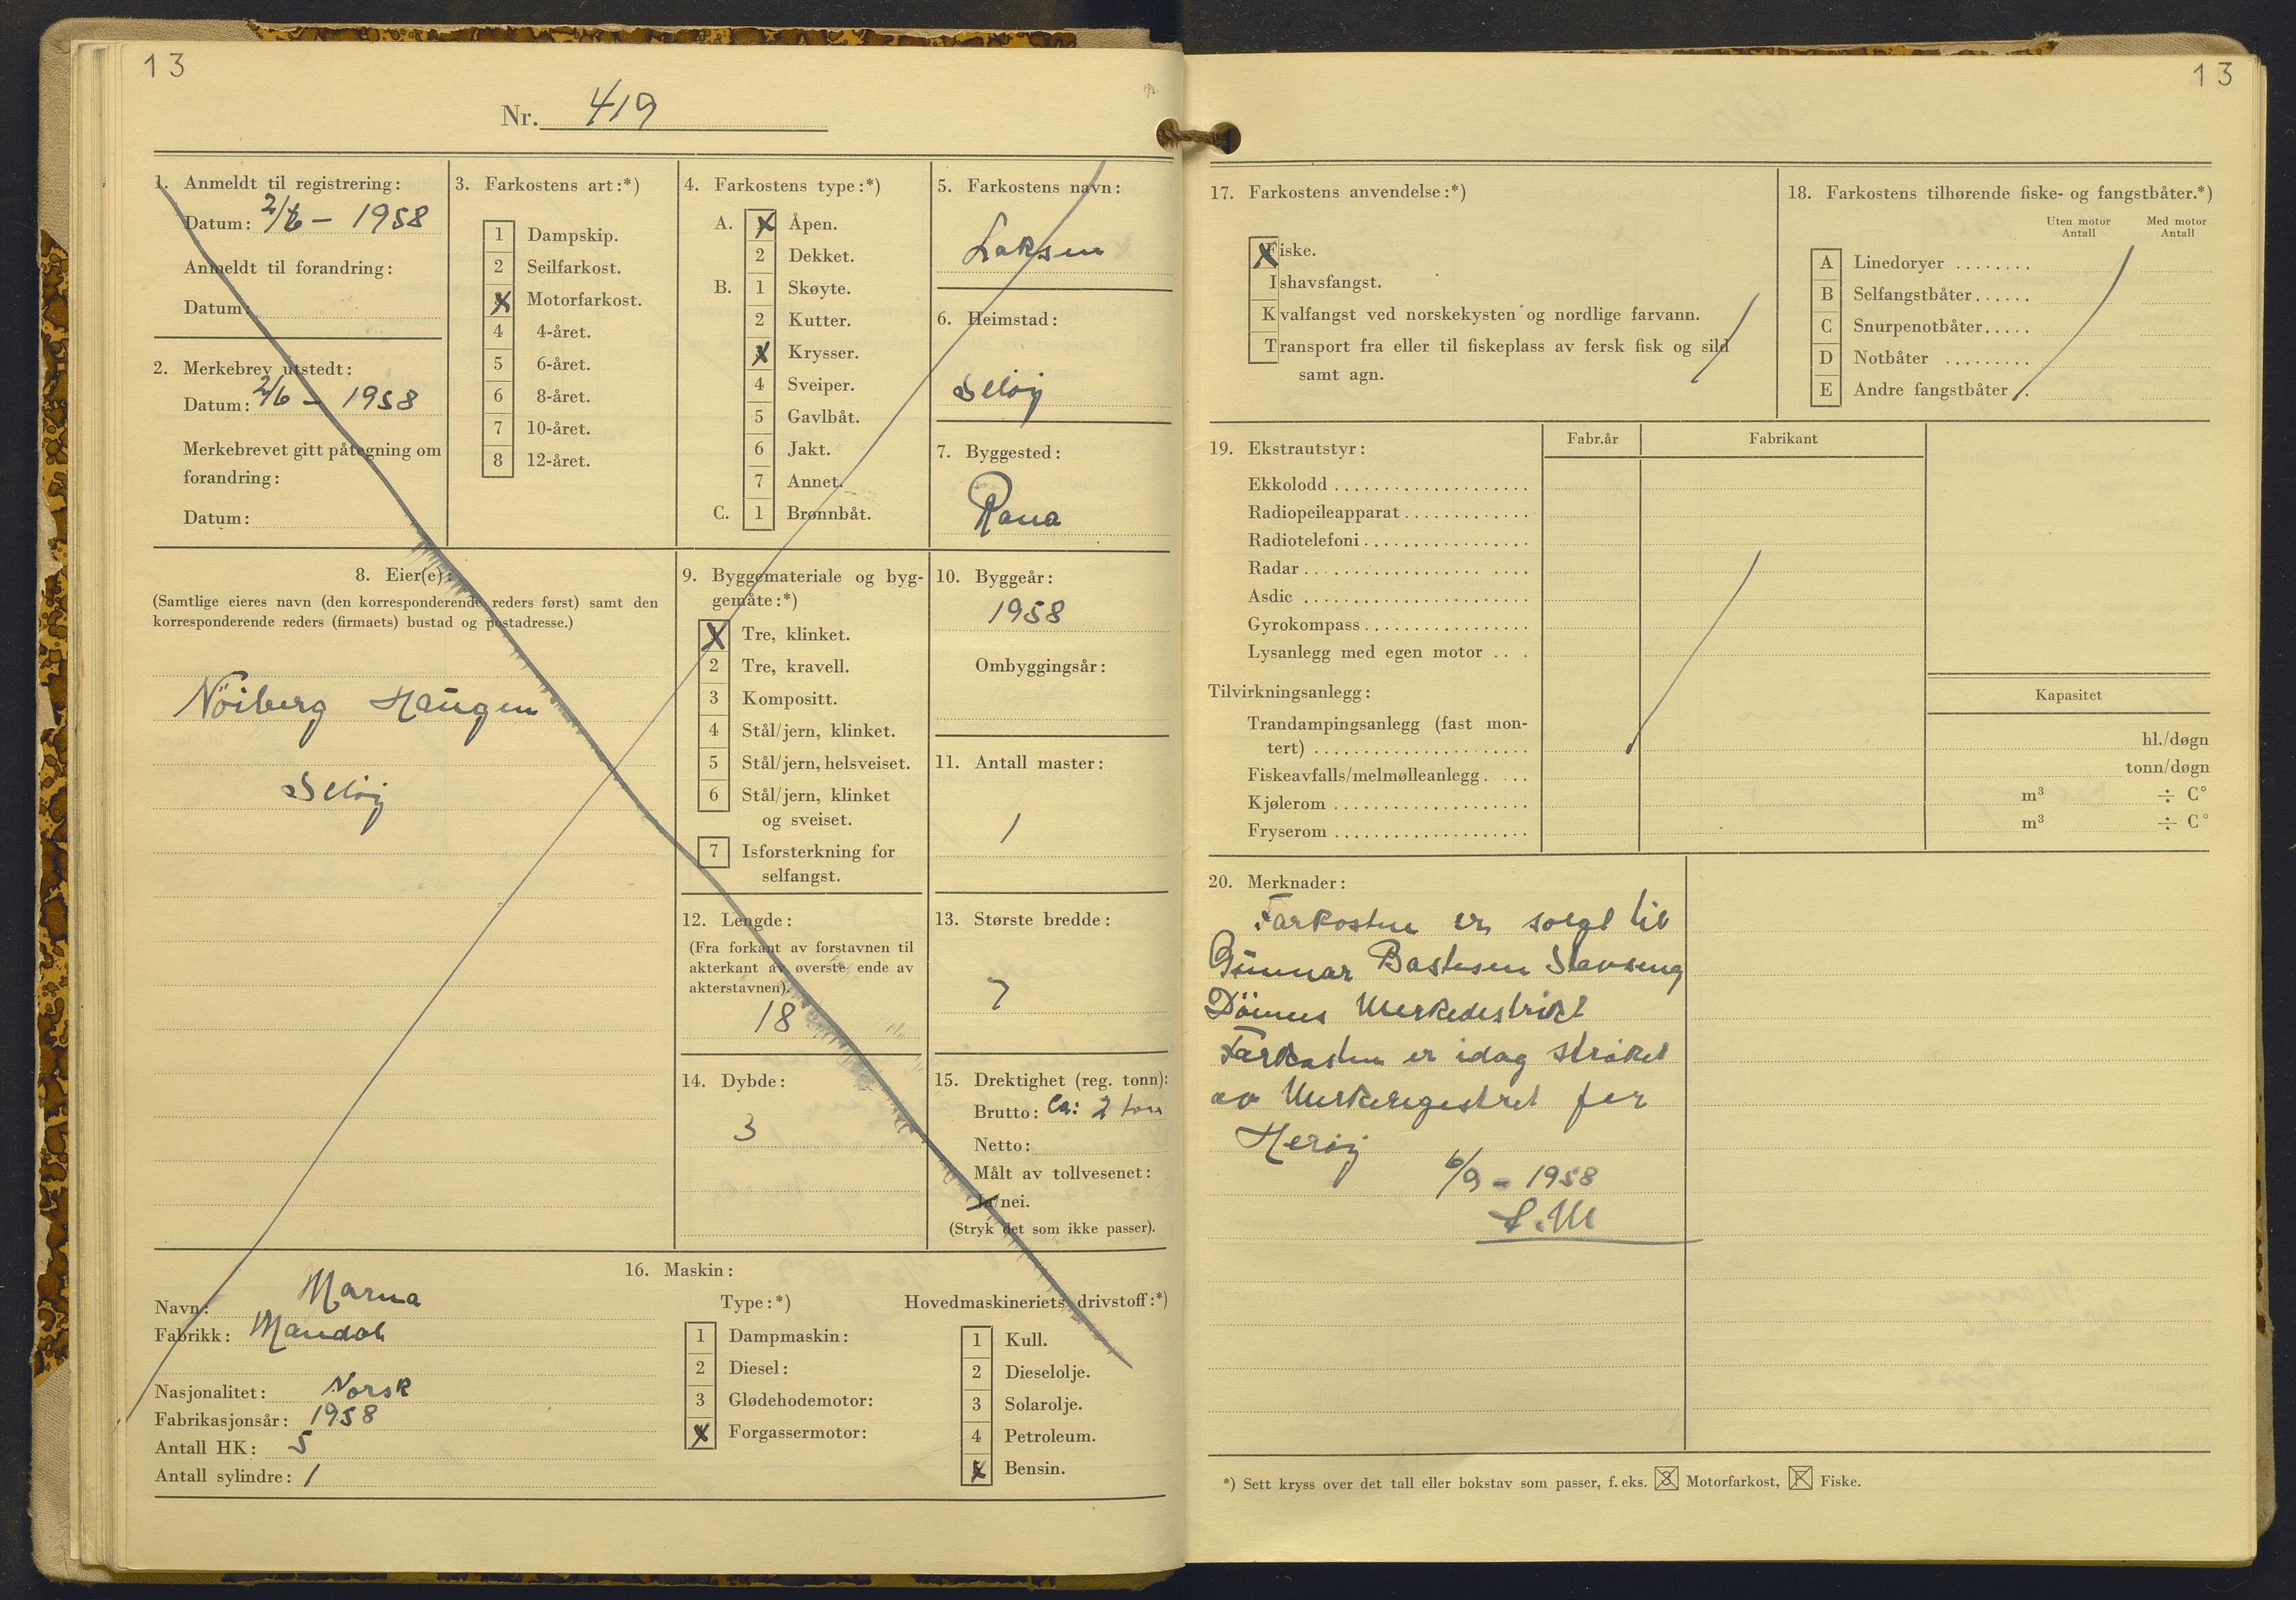 13
Nr. 419
1. Anmeldt til registrering:
Datum: 2/6 – 1958
Anmeldt til forandring:
Datum:
2. Merkebrev utstedt:
Datum: 2/6 – 1958
Merkebrevet gitt påtegning om
forandring:
Datum:
3. Farkostens art:*)
1 Dampskip.
2 Seilfarkost.
X Motorfarkost.
4 4-året.
5 6-året.
6 8-året.
7 10-året.
8 12-året.
4. Farkostens type:*)
A. X Åpen.
2 Dekket.
B. 1 Skøyte.
2 Kutter.
X Krysser.
4 Sveiper.
5 Gavlbåt.
6 Jakt.
7 Annet.
C. 1 Brønnbåt.
5. Farkostens navn:
Laksen
6. Heimstad:
Seløy
7. Byggested:
Rana
8. Eier(e):
(Samtlige eieres navn (den korresponderende reders først) samt den
korresponderende reders (firmaets) bustad og postadresse.)
Nöiberg Haugen
Seløy
9. Byggemateriale og byg-
gemåte:*)
X Tre, klinket.
2 Tre, kravell.
3 Kompositt.
4 Stål/jern, klinket.
5 Stål/jern, helsveiset.
6 Stål/jern, klinket
og sveiset.
7 Isforsterkning for
selfangst.
10. Byggeår:
1958
Ombyggingsår:
11. Antall master:
1
12. Lengde:
(Fra forkant av forstavnen til
akterkant av øverste ende av
akterstavnen).
18
13. Største bredde:
7
14. Dybde:
3
15. Drektighet (reg. tonn):
Brutto: Ca: 2 ton
Netto:
Målt av tollvesenet:
Ja/nei.
(Stryk det som ikke passer).
16. Maskin:
Navn: Marna
Fabrikk: Mandal
Nasjonalitet: Norsk
Fabrikasjonsår: 1958
Antall HK: 5
Antall sylindre: 1
Type:*)
1 Dampmaskin:
2 Diesel:
3 Glødehodemotor:
X Forgassermotor:
Hovedmaskineriets drivstoff:*)
1 Kull.
2 Dieselolje.
3 Solarolje.
4 Petroleum.
X Bensin.
13
17. Farkostens anvendelse:*)
Fiske.
Ishavsfangst.
Kvalfangst ved norskekysten og nordlige farvann.
Transport fra eller til fiskeplass av fersk fisk og sild
samt agn.
18. Farkostens tilhørende fiske- og fangstbåter.*)
Uten motor Antall
Med motor Antall
A Linedoryer ........
B Selfangstbåter......
C Snurpenotbåter.....
D Notbåter .........
E Andre fangstbåter .
19. Ekstrautstyr:
Fabr.år
Fabrikant
Ekkolodd
Radiopeileapparat
Radiotelefoni
Radar
Asdic
Gyrokompass
Lysanlegg med egen motor
Tilvirkningsanlegg:
Kapasitet
Trandampingsanlegg (fast mon-
tert) hl./døgn
Fiskeavfalls/melmølleanlegg tonn/døgn
Kjølerom m³ ÷ C°
Fryserom m³ ÷ C°
20. Merknader:
Farkosten er solgt til
Gunnar Bastesen Slavseng
Dönnes Merkedestrikt
Farkosten er idag strøket
av Merkeregestret for
Herøy
6/9 – 1958
S.M
*) Sett kryss over det tall eller bokstav som passer, f. eks. 3 Motorfarkost, F Fiske.